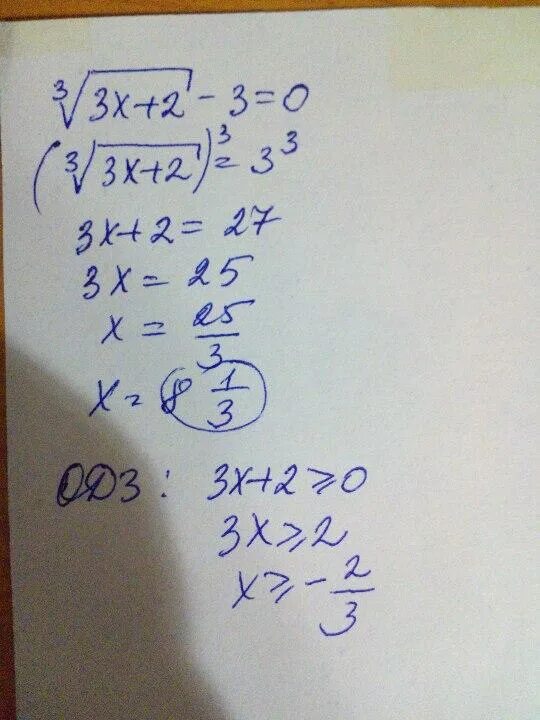 ∛(3x+2) - 3 = 0
(∛(3x+2))³ = 3³
3x+2 = 27
3x = 25
x = 25/3
x = 8 1/3
ОДЗ: 3x+2 ≥ 0
3x ≥ 2
x ≥ - 2/3